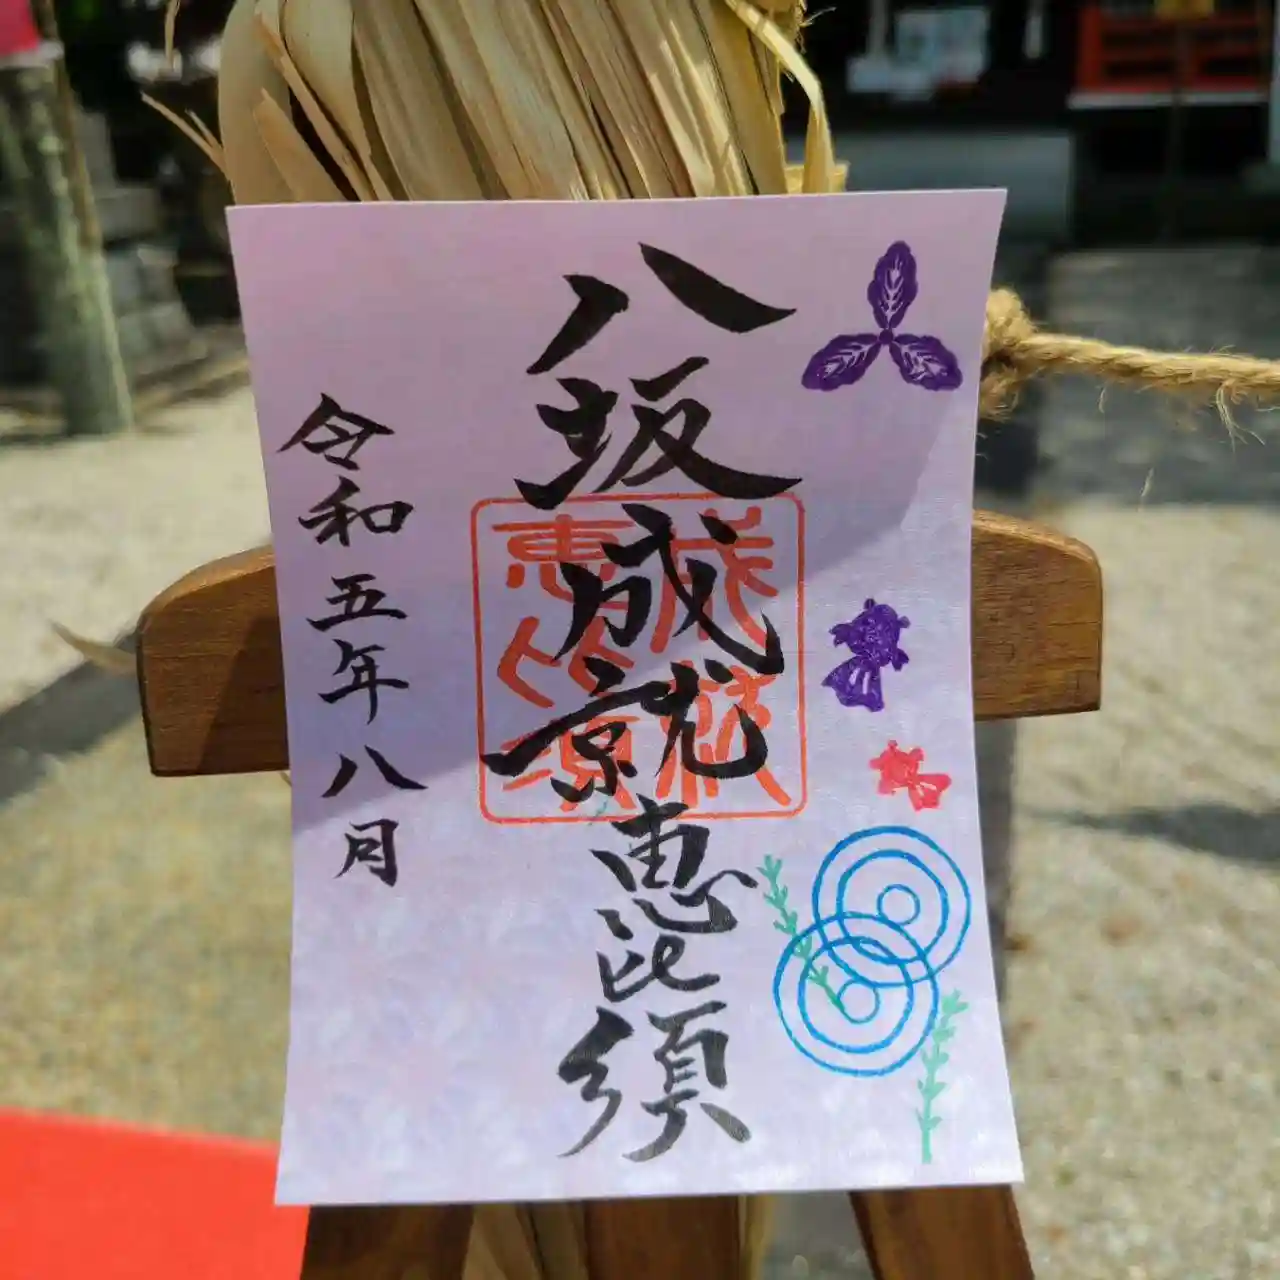 八坂成就恵比須
成就恵比須
令和五年八月